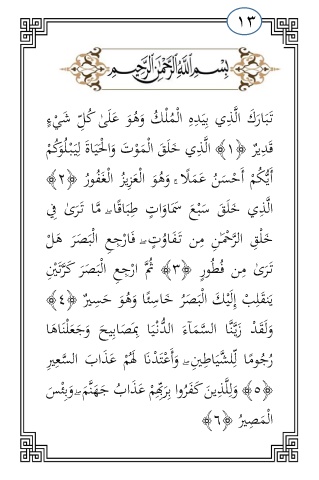 ١٣
بِسْمِ اللَّهِ الرَّحْمَٰنِ الرَّحِيمِ
تَبَارَكَ الَّذِي بِيَدِهِ الْمُلْكُ وَهُوَ عَلَىٰ كُلِّ شَيْءٍ
قَدِيرٌ ﴿١﴾ الَّذِي خَلَقَ الْمَوْتَ وَالْحَيَاةَ لِيَبْلُوَكُمْ
أَيُّكُمْ أَحْسَنُ عَمَلًا ۚ وَهُوَ الْعَزِيزُ الْغَفُورُ ﴿٢﴾
الَّذِي خَلَقَ سَبْعَ سَمَاوَاتٍ طِبَاقًا ۖ مَّا تَرَىٰ فِي
خَلْقِ الرَّحْمَٰنِ مِن تَفَاوُتٍ ۖ فَارْجِعِ الْبَصَرَ هَلْ
تَرَىٰ مِن فُطُورٍ ﴿٣﴾ ثُمَّ ارْجِعِ الْبَصَرَ كَرَّتَيْنِ
يَنقَلِبْ إِلَيْكَ الْبَصَرُ خَاسِئًا وَهُوَ حَسِيرٌ ﴿٤﴾
وَلَقَدْ زَيَّنَّا السَّمَاءَ الدُّنْيَا بِمَصَابِيحَ وَجَعَلْنَاهَا
رُجُومًا لِّلشَّيَاطِينِ ۖ وَأَعْتَدْنَا لَهُمْ عَذَابَ السَّعِيرِ
﴿٥﴾ وَلِلَّذِينَ كَفَرُوا بِرَبِّهِمْ عَذَابُ جَهَنَّمَ ۖ وَبِئْسَ
الْمَصِيرُ ﴿٦﴾